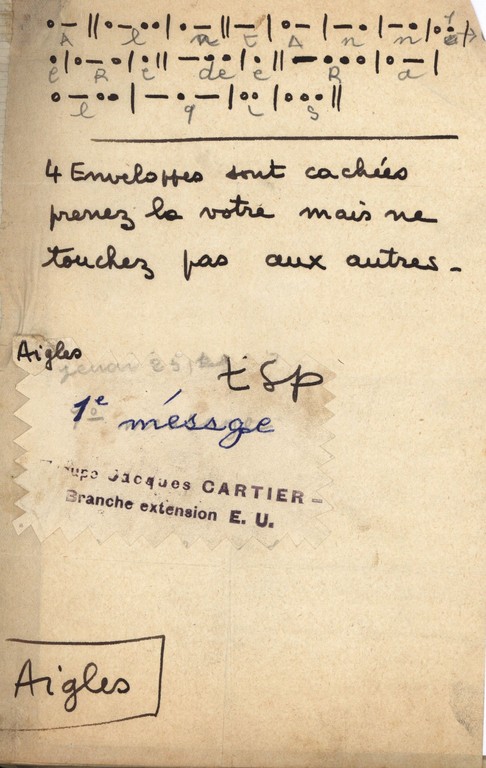 A l n t A n n
e R e de e R a
l q i s
4 Enveloppes sont cachées
prenez la votre mais ne
touchez pas aux autres -
Aigles
tsp
1e méssge
Groupe Jacques CARTIER -
Branche extension E. U.
Aigles